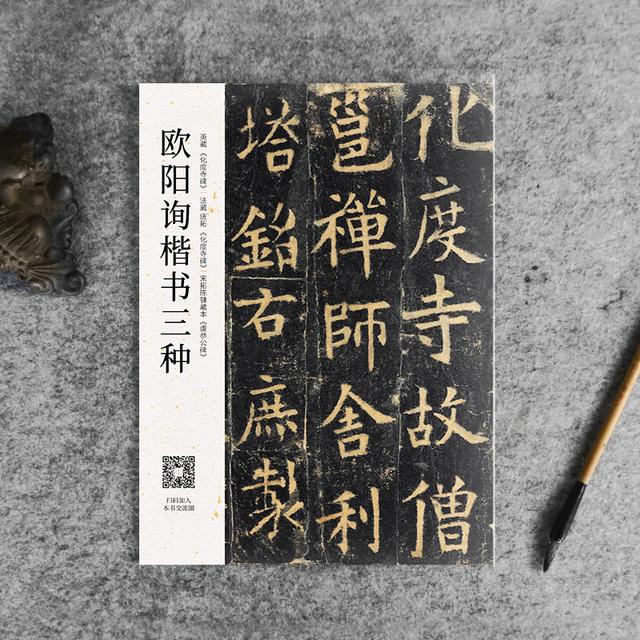 欧阳询楷书三种
英藏《化度寺碑》|法藏 唐拓《化度寺碑》|宋拓陈锦藏本《虞恭公碑》
扫码加入
本书交流圈
化度寺故僧
邕禪師舍利
塔銘右庶製